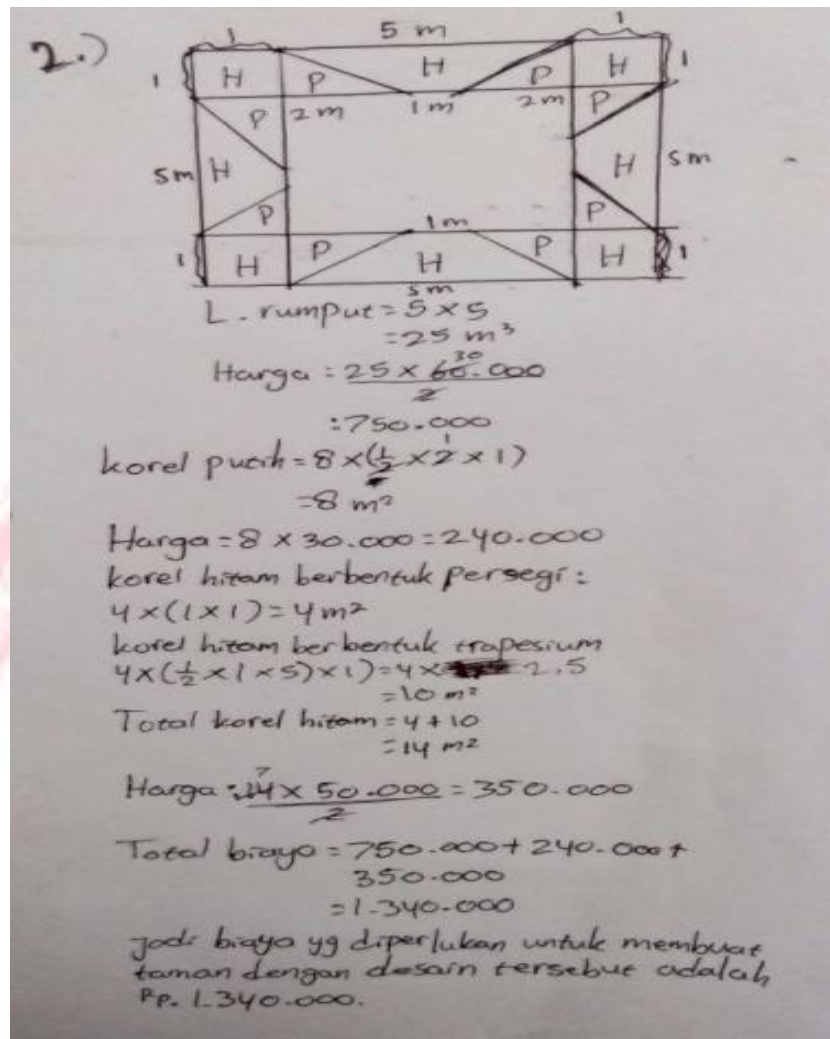 2.)
1 5 m 1
1 H P H P H 1
P 2 m 1 m 2 m P
5 m H H 5 m
P P
1 m
1 H P H P H 1
5 m
L. rumput = 5 x 5
= 25 m³
Harga = 25 x 60.000 30
2
: 750.000
korel putih = 8 x (1/2 x 2 x 1) 1
= 8 m²
Harga = 8 x 30.000 = 240.000
korel hitam berbentuk persegi :
4 x (1 x 1) = 4 m²
korel hitam berbentuk trapesium
4 x (1/2 x 1 x 5) x 1) = 4 x 2,5
= 10 m²
Total korel hitam = 4 + 10
= 14 m²
Harga : 14 x 50.000 = 350.000 7
2
Total biaya = 750.000 + 240.000 +
350.000
= 1.340.000
jadi biaya yg diperlukan untuk membuat
taman dengan desain tersebut adalah
Rp. 1.340.000.